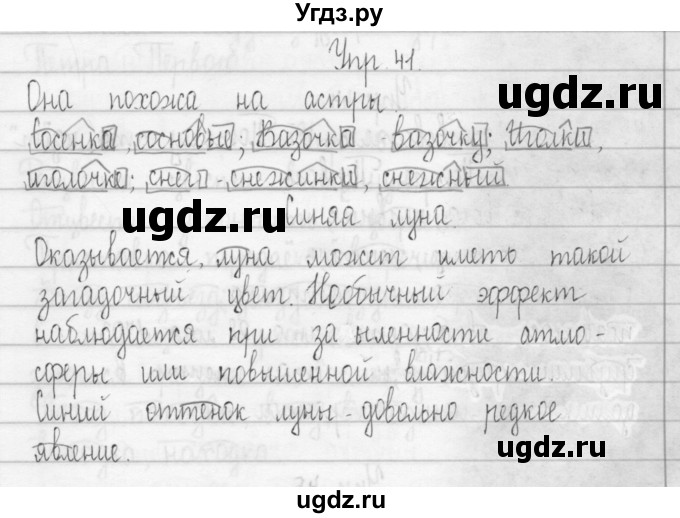 Угдз.ру
Упр. 41.
Она похожа на астры
ugdz.ru
восенка, сосновые; Вазочка вазочку; Иголки,
иголочка; снег - снежинки, снежный
ugdz.ru
Синяя луна.
Оказывается, луна может иметь такой
загадочный цвет. Необычный эффект
наблюдается при за ыленности атмо-
сферы или повышенной влажности.
Синий оттенок луны - довольно редкое
явление.
ugdz.ru
ugdz.ru